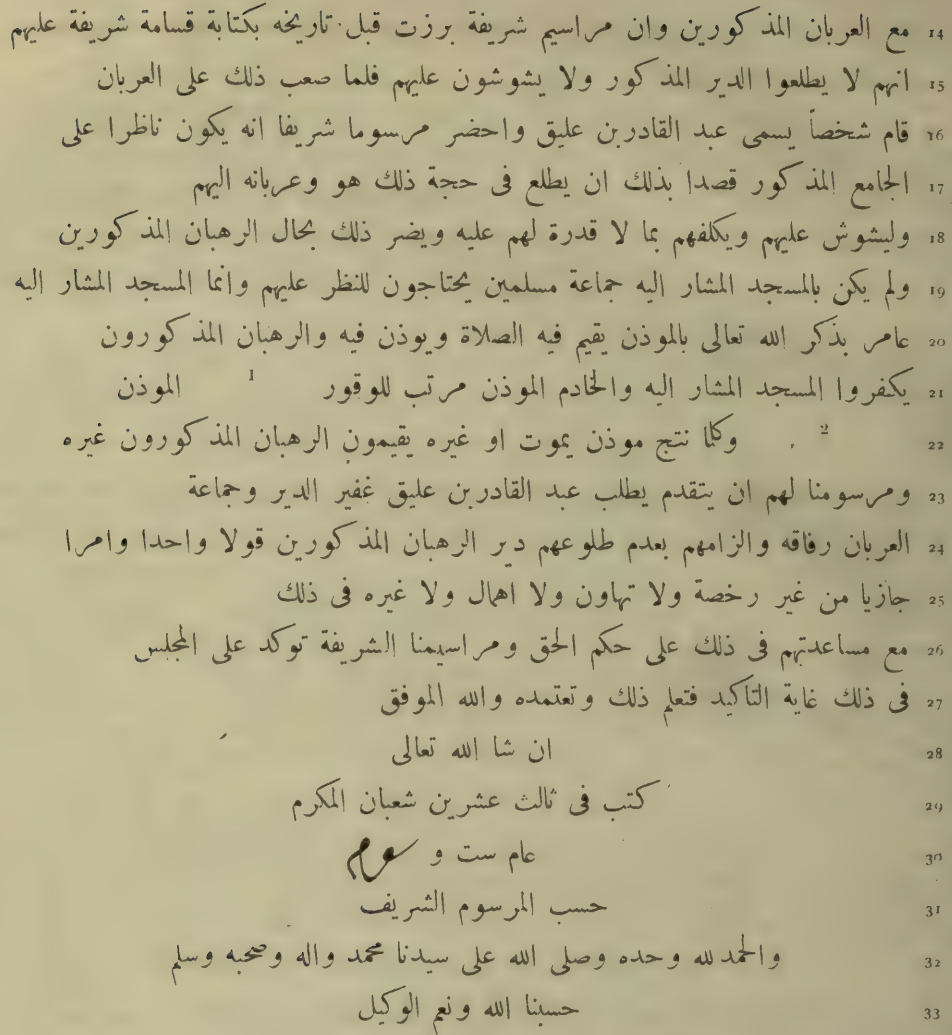 14 مع العربان المذكورين وان مراسيم شريفة برزت قبل تاريخه بكتابة قسامة شريفة عليهم
15 انهم لا يطلعوا الدير المذكور ولا يشوشون عليهم فلما صعب ذلك على العربان
16 قام شخصاً يسمى عبد القادر بن عليق واحضر مرسوما شريفا انه يكون ناظرا على
17 الجامع المذكور قصدا بذلك ان يطلع فى حجة ذلك هو وعربانه اليهم
18 وليشوش عليهم ويكلفهم بما لا قدرة لهم عليه ويضر ذلك بحال الرهبان المذكورين
19 ولم يكن بالمسجد المشار اليه جماعة مسلمين يحتاجون للنظر عليهم وانما المسجد المشار اليه
20 عامر بذكر الله تعالى بالموذن يقيم فيه الصلاة ويوذن فيه والرهبان المذكورون
21 يكنفروا المسجد المشار اليه والخادم الموذن مرتب للوقور 1 الموذن
22 2 . وكلما نتج موذن يموت او غيره يقيمون الرهبان المذكورون غيره
23 ومرسومنا لهم ان يتقدم يطلب عبد القادر بن عليق غفير الدير وجماعة
24 العربان رفاقه والزامهم بعدم طلوعهم دير الرهبان المذكورين قولا واحدا وامرا
25 جازيا من غير رخصة ولا تهاون ولا اهمال ولا غيره فى ذلك
26 مع مساعدتهم فى ذلك على حكم الحق ومراسيمنا الشريفة توكد على المجلس
27 فى ذلك غاية التاكيد فتعلم ذلك وتعتمده والله الموفق
28 ان شا الله تعالى
29 كتب فى ثالث عشرين شعبان المكرم
30 عام ست و
31 حسب المرسوم الشريف
32 والحمد لله وحده وصلى الله على سيدنا محمد واله وصحبه وسلم
33 حسبنا الله ونعم الوكيل